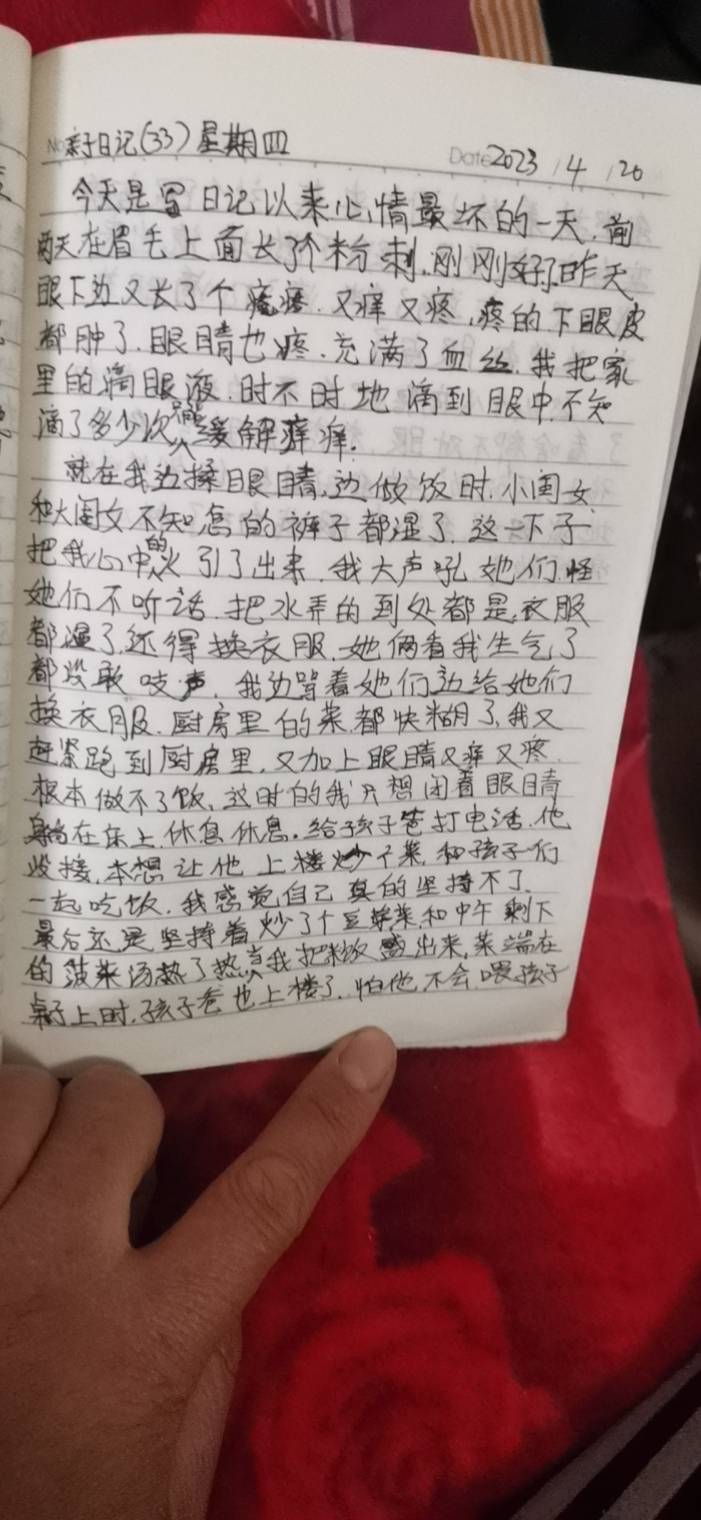 No 亲子日记(33) 星期四 Date 2023 / 4 / 20
今天是写日记以来心情最坏的一天.前
两天在眉毛上面长了个粉刺.刚刚好了.昨天
眼下边又长了个疙瘩.又痒又疼,疼的下眼皮
都肿了.眼睛也疼.充满了血丝.我把家
里的滴眼液.时不时地滴到眼中.不知
滴了多少次只能缓解痒.
就在我边揉眼睛.边做饭时.小闺女
和大闺女不知怎的裤子都湿了.这一下子
把我心中的火引了出来.我大声吼她们.怪
她们不听话.把水弄的到处都是.衣服
都湿了.还得换衣服.她俩看我生气了
都没敢吱声.我边骂着她们边给她们
换衣服.厨房里的菜都快糊了.我又
赶紧跑到厨房里.又加上眼睛又痒又疼.
根本做不了饭.这时的我只想闭着眼睛
躺在床上.休息休息.给孩子爸打电话.他
没接.本想让他上楼炒个菜.和孩子们
一起吃饭.我感觉自己真的坚持不了.
最后还是坚持着炒了个豆芽菜.和中午剩下
的菠菜汤热了热.当我把米饭盛出来,菜端在
桌子上时.孩子爸也上楼了.怕他不会喂孩子